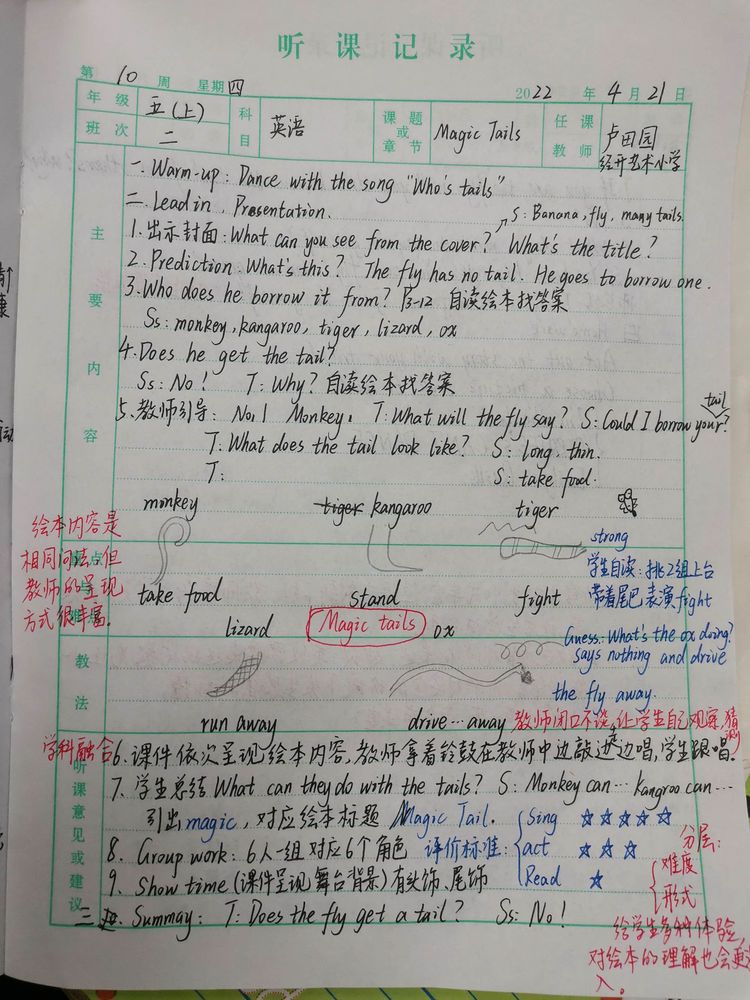 听课记录
第 10 周 星期四 2022 年 4 月 21 日
年级 五(上) 科目 英语 课题或章节 Magic Tails 任课教师 卢田园
班次 二 经开艺术小学
主要内容
一. Warm-up: Dance with the song "Who's tails"
二. Lead in, Presentation.
S: Banana, fly, many tails.
1. 出示封面: What can you see from the cover? What's the title?
2. Prediction: What's this? The fly has no tail. He goes to borrow one.
3. Who does he borrow it from? P3-12 自读绘本找答案
Ss: monkey, kangaroo, tiger, lizard, ox
4. Does he get the tail?
Ss: No! T: Why? 自读绘本找答案
5. 教师引导: No.1 Monkey. T: What will the fly say? S: Could I borrow your tail?
T: What does the tail look like? S: long, thin.
T: S: take food.
monkey kangaroo tiger
绘本内容是
相同问法,但
教师的呈现
方式很丰富.
strong
学生自读: 挑2组上台
带着尾巴表演fight
take food stand fight
lizard Magic tails ox
Guess: What's the ox doing?
says nothing and drive
the fly away.
教法
run away drive … away 教师闭口不谈,让学生自己观察,猜测
学科融合
听课意见或建议
6. 课件依次呈现绘本内容,教师拿着铃鼓在教师中边敲边走边唱,学生跟唱.
7. 学生总结 What can they do with the tails? S: Monkey can… kangroo can…
引出magic, 对应绘本标题 Magic Tail.
8. Group work: 6人一组对应6个角色 评价标准: Sing ☆☆☆☆☆
act ☆☆☆
Read ☆
9. Show time (课件呈现舞台背景) 有头饰、尾饰
分层:
难度
形式
三. Summay: T: Does the fly get a tail? Ss: No!
给学生多种体验,
对绘本的理解也会更
入。